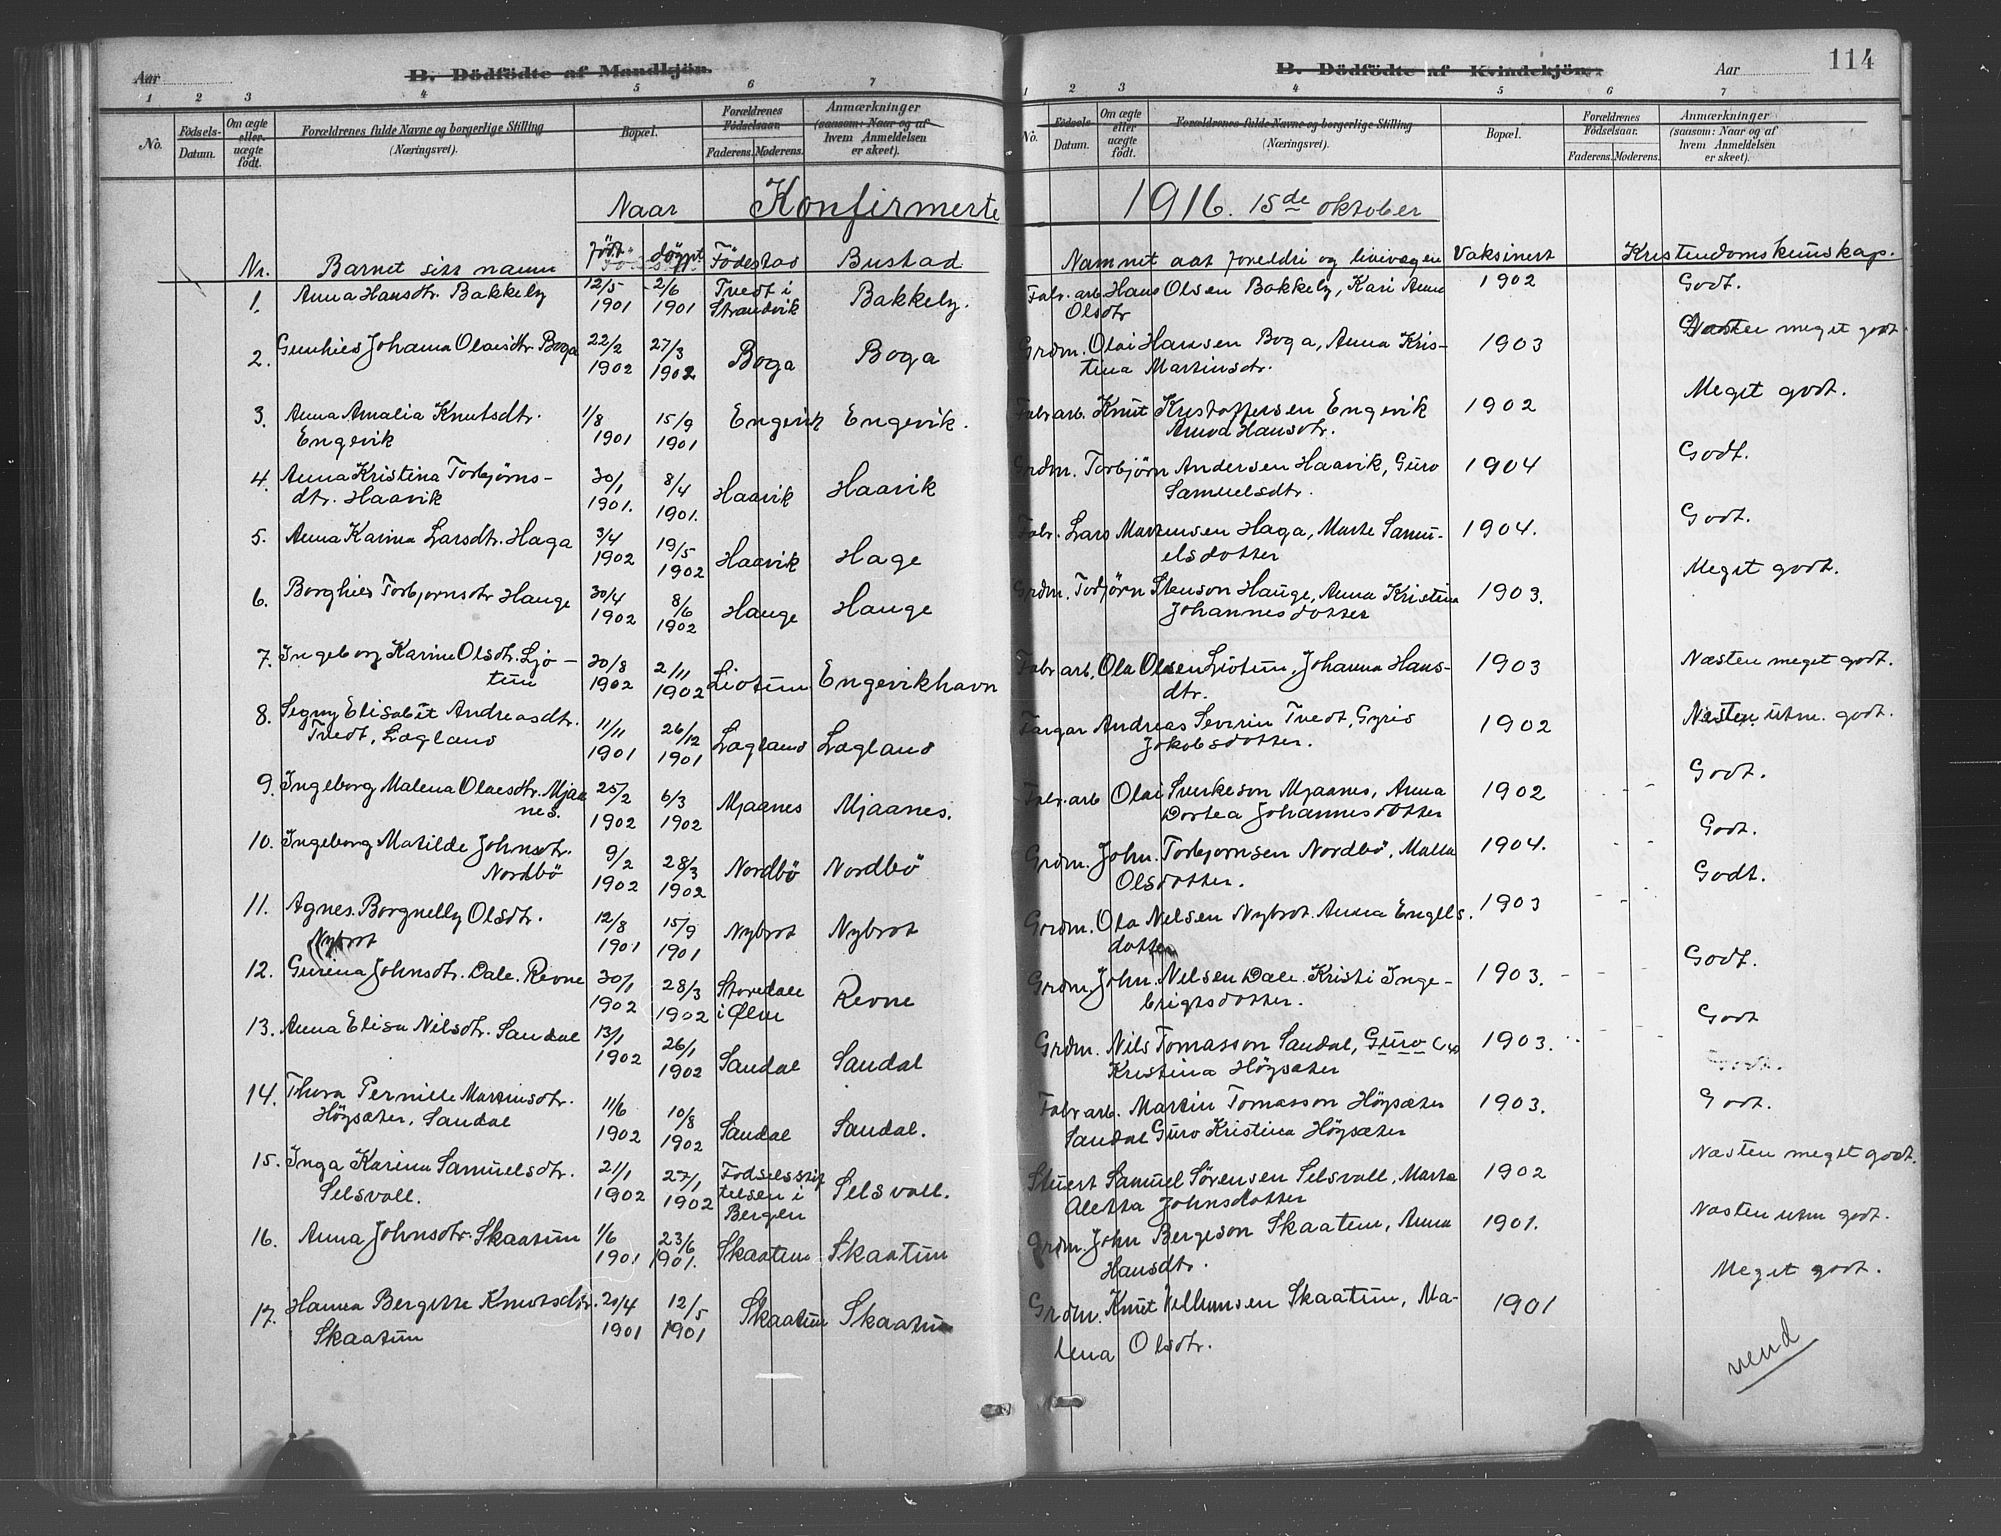 Aar
B. Dödfödte af Mandkjön.
B. Dödfödte af Kvindekjön.
Aar
114
1 2 3 4 5 6 7
1 2 3 4 5 6 7
No. Födsels-Datum. Om ægte eller uægte födt. Forældrenes fulde Navne og borgerlige Stilling (Næringsvei). Bopæl. Forældrenes Födselsaar. Faderens. Moderens. Anmærkninger (saasom: Naar og af hvem Anmeldelsen er skeet).
No. Födsels Datum. Om ægte eller uægte födt. Forældrenes fulde Navne og borgerlige Stilling (Næringsvei). Bopæl. Forældrenes Födselsaar. Faderens. Moderens. Anmærkninger (saasom: Naar og af hvem Anmeldelsen er skeet).
Naar Konfirmerte 1916. 15de oktober
Nr. Barnet sitt namn födt döypt Födestad Bustad Namnet aat foreldri og livivegen Vaksinert Kristendomskunskap.
1. Anna Hansdtr. Bakkely 12/5 1901 2/6 1901 Tvedt i Strandvik Bakkely. Fabr. arb Hans Olsen Bakkely, Kari Anna Olsdtr 1902 Godt.
2. Johanna Olaisdtr. Boga 22/2 1902 27/3 1902 Boga Boga Grdm. Olai Hansen Boga, Anna Kristina Martinsdtr. 1903 Næsten meget godt
3. Anna Amalia Knutsdtr. Engevik 1/8 1901 15/9 1901 Engevik Engevik. Fabr arb. Knut Kristoffersen Engevik Hansdtr. 1902 Meget godt.
4. Anna Kristina Torbjørns-
dtr. Haavik 30/1 1901. 8/4 1901. Haavik Haavik Grdm. Torbjørn Andersen Haavik, Guro Samuelsdtr. 1904 Godt.
5. Anna Karina Larsdtr. Haga 3/4 1902 19/5 1902 Haavik Hage Fabr. Lars Martensen Haga, Marte Samu-
elsdotter 1904. Godt.
6. Borghild Torbjornsdtr Hauge 30/4 1902 8/6 1902 Hauge Hauge Grdm. Torbjørn Stenson Hauge, Anna Kristina Johannesdotter 1903. Meget godt.
7. Ingeborg Karine Olsdtr. Ljo-
tun 30/8 1902 2/11 1902 Liotun Engevikhavn Fabr arb. Ola Olsen Liotun, Johanna Hans-
dtr. 1903 Næsten meget godt.
8. Signy Elisabet Andreasdtr. Tvedt, Lægland 11/11 1901 26/12 1901 Lægland Lægland Fargar Andreas Severin Tvedt, Gyrid Jakobsdotter. 1902 Næsten utm. godt.
9. Ingeborg Malena Olaisdtr. Mjaa
nes. 25/2 1902 6/3 1902 Mjaanes Mjaanes. Fabr. arb Olai Sverkeson Mjaanes, Anna Dortea Johannesdotter 1902 Godt.
10. Ingeborg Matilde Johnsdtr. Nordbö 9/2 1902 28/3 1902 Nordbö Nordbö Grdm. John. Torbjornsen Nordbö, Malla Olsdotter. 1904. Godt.
11. Agnes. Borgnelly Olsdtr. Nybrot 12/8 1901 15/9 1901 Nybrot Nybrot Grdm. Ola Nelsen Nybrot. Anna Engels. dotter 1903 Godt.
12. Gurina Johnsdtr. Dale. Revne 30/1 1902 28/3 1902 Storedale i Ølen Revne Grdm. John. Nilsen Dale. Kristi Inge-
brigtsdotter. 1903. Godt.
13. Anna Elisa Nilsdtr. Sandal 13/1 1902 26/1 1902 Sandal Sandal Grdm. Nils Tomasson Sandal, Guro Kristina Höysæter 1903. Godt
14. Thora Pernille Martinsdtr. Höysæter, Sandal 11/6 1902 10/8 1902 Sandal Sandal. Fabr arb. Martin Tomasson Höysæter Sandal Guro Kristina Höysæter 1903. Godt.
15. Inga Karina Samuelsdtr. Selsvoll. 21/1 1902 27/1 1902 Fodselsstif
telsen i Bergen Selsvoll. Stuert Samuel Sørensen Selsvoll, Marta Aletta Johnsdotter 1902 Næsten meget godt.
16. Anna Johnsdtr. Skaatun 1/6 1901 23/6 1901. Skaatun Skaatun Grdm. John Bergeson Skaatun, Anna Hansdtr. 1901. Næsten utm godt.
17. Hanna Bergitte Knutsdtr. Skaatun 20/4 1901 12/5 1901 Skaatun Skaatun Grdm. Knut Skaatun, Ma-
lena Olsdtr. 1901 Meget godt.
vend